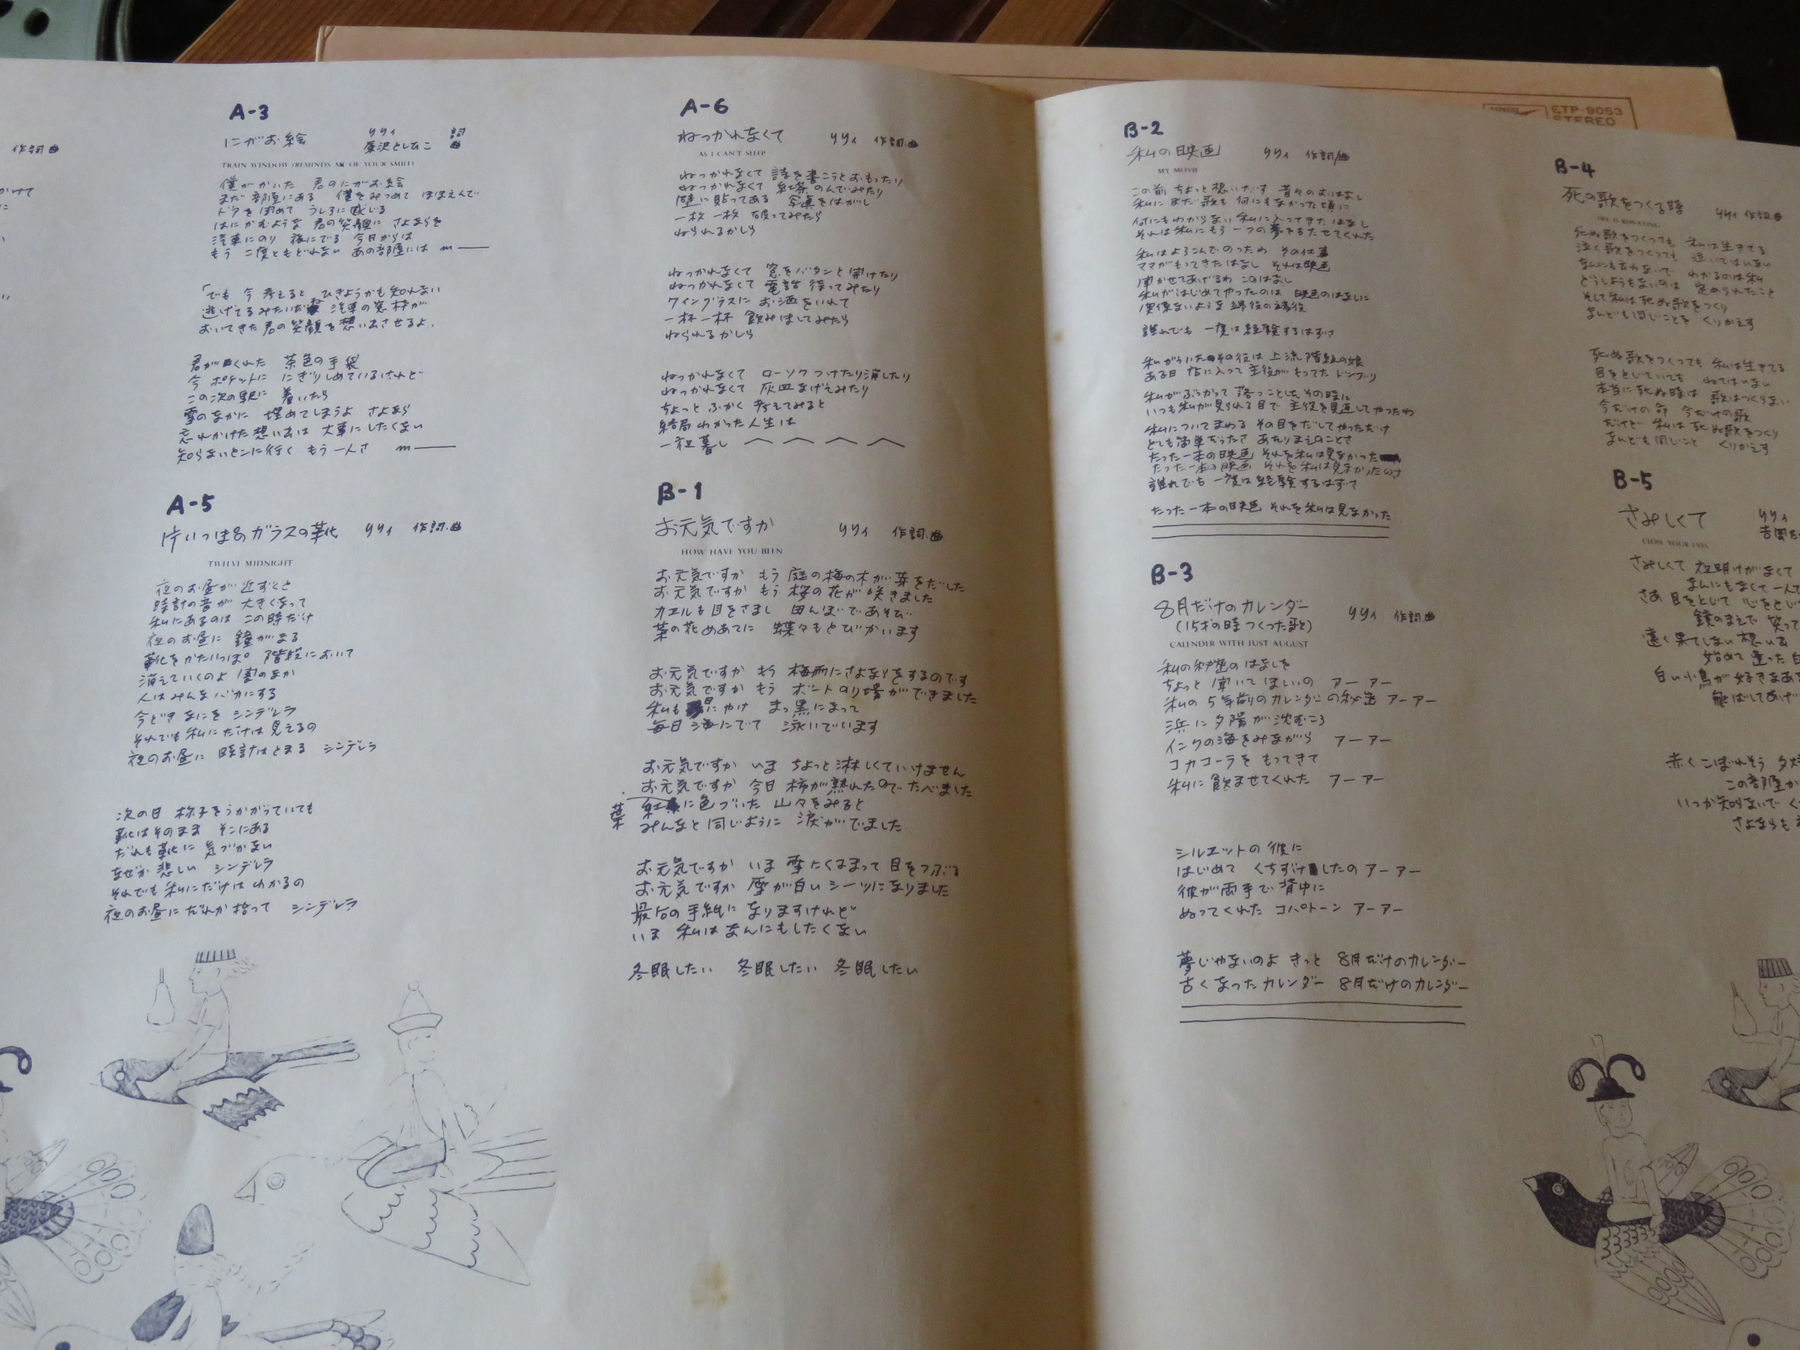 ETP-9053
STEREO
作詞.曲
A-3
にがお絵 りりィ 詞
廉沢としひこ 曲
僕がかいた 君のにがお絵
まだ部屋にある 僕をみつめて ほほえんで
ドアを閉めて うしろに感じる
はにかむような 君の笑顔に さよならを
汽車にのり 旅にでる 今日からは
もう 二度ともどれない あの部屋には
「でも 今 考えると ひきょうかも知れない
汽車の窓枠が
おいてきた君の笑顔を想い出させるよ.
君がくれた 茶色の手袋
今 ポケットに にぎりしめているけれど
この次の駅に 着いたら
雪のなかに 埋めてしまうよ さよなら
忘れかけた想い出は 大事にしたくない
知らないとこに行く もう一人さ
A-5
片いっぽのガラスの靴 りりィ 作詞.曲
TWELVE MIDNIGHT
夜のお昼が 近ずくと
時計の音が 大きくなって
私にあるのは この時だけ
夜のお昼に 鐘がなる
靴をかたいっぽ 階段において
消えていくのよ 闇のなか
人はみんな バカにする
今どき なにを シンデレラ
それでも 私にだけは 見えるの
夜のお昼に 時計はとまる シンデレラ
次の日 様子をうかがっていても
靴はそのまま そこにある
だれも靴に 気づかない
なぜか 悲しい シンデレラ
それでも 私にだけは わかるの
夜のお昼に だれか拾って シンデレラ
A-6
ねつかれなくて りりィ 作詞.曲
AS I CAN'T SLEEP
ねつかれなくて 詩を書こうとおもったり
ねつかれなくて 紅茶のんでみたり
壁に貼ってある 写真をはがし
一枚 一枚 破ってみたら
ねられるかしら
ねつかれなくて 窓をバタンと開けたり
ねつかれなくて 電話 待ってみたり
ワイングラスに お酒をいれて
一杯一杯 飲みほしてみたら
ねられるかしら
ねつかれなくて ローソクつけたり消したり
ねつかれなくて 灰皿なげてみたり
ちょっと ふかく 考えてみると
結局わかった人生は
一夜暮し
B-1
お元気ですか りりィ 作詞.曲
HOW HAVE YOU BEEN
お元気ですか もう 庭の梅の木が 芽をだした
お元気ですか もう 桜の花が 咲きました
カエルも目をさまし 田んぼであそび
菜の花めあてに 蝶々もとびかいます
お元気ですか もう 梅雨にさよならをするのです
お元気ですか もう ボートのり場ができました
私も 日にやけ まっ黒になって
毎日 海にでて 泳いでいます
お元気ですか いま ちょっと淋しくていけません
お元気ですか 今日 柿が熟れたのでたべました
紅葉に色づいた 山々をみると
みんなと同じように 涙がでました
お元気ですか いま 雪にくるまって 目をつぶる
お元気ですか 雪が白いシーツになりました
最后の手紙に なりますけれど
いま 私は なんにもしたくない
冬眠したい 冬眠したい 冬眠したい
B-2
私の映画 りりィ 作詞/曲
MY MOVIE
この前 ちょっと想いだす 昔々のおはなし
私にまだ歌も 何にもなかった頃に
何にもわからない 私に入ってきたはなし
それは私にもう一つの夢をもたせてくれた
私はよろこんでのったわ その仕事
ママがもってきたはなし それは映画
聞かせてあげるわ このはなし
私がはじめてやったのは 映画のはなしに
関係ないような 端役の端役
誰れでも 一度は経験するはずさ
その役は 上流階級の娘
ある日 店に入って主役がもってた ドンブリ
私がぶつかって 落っことした その時に
いつも私が見られる目で 主役を見返してやったわ
私についてまわる その目をだしてやっただけ
とても簡単だったさ あたりまえのことさ
たった一本の映画 それを私は見なかった
たった一本の映画 それを私は見なかったのさ
誰れでも 一度は経験するはずさ
たった一本の映画 それを私は見なかった
B-3
8月だけのカレンダー りりィ 作詞.曲
(15才の時つくった歌)
CALENDER WITH JUST AUGUST
私の秘密の はなしを
ちょっと 聞いて ほしいの アーアー
私の 5年前のカレンダーの秘密 アーアー
浜に夕陽が 沈むころ
インクの海をみながら アーアー
コカコーラを もってきて
私に飲ませてくれた アーアー
シルエットの彼に
はじめて くちずけしたの アーアー
彼が両手で 背中に
ぬってくれた コパトーン アーアー
夢じゃないのよ きっと 8月だけのカレンダー
古くなったカレンダー 8月だけのカレンダー
B-4
死の歌をつくる時 りりィ 作詞.曲
死ぬ歌をつくっても 私は生きてる
泣く歌をつくっても 泣いてはいない
なんにも言わないで わかるのは私
どうしようもないのは 定められたこと
そして私は死ぬ歌をつくり
なんども同じことを くりかえす
死ぬ歌をつくっても 私は生きてる
目をとじていても ねてはいない
本当に死ぬ時は 歌はつくらない
今だけの命 今だけの歌
だけど 私は 死ぬ歌をつくり
なんども同じこと くりかえす
B-5
さみしくて りりィ
CLOSE YOUR EYES
さみしくて 夜明けがなくて
なんにもなくて 一人で
さあ 目をとじて 心をとじ
鏡のまえで 笑って
遠く果てしない想い出
始めて逢った日
白い小鳥が 好きなあな
飛ばしてあげ
赤く こぼれそう 夕
この部屋か
いつか知らないで く
さよならも